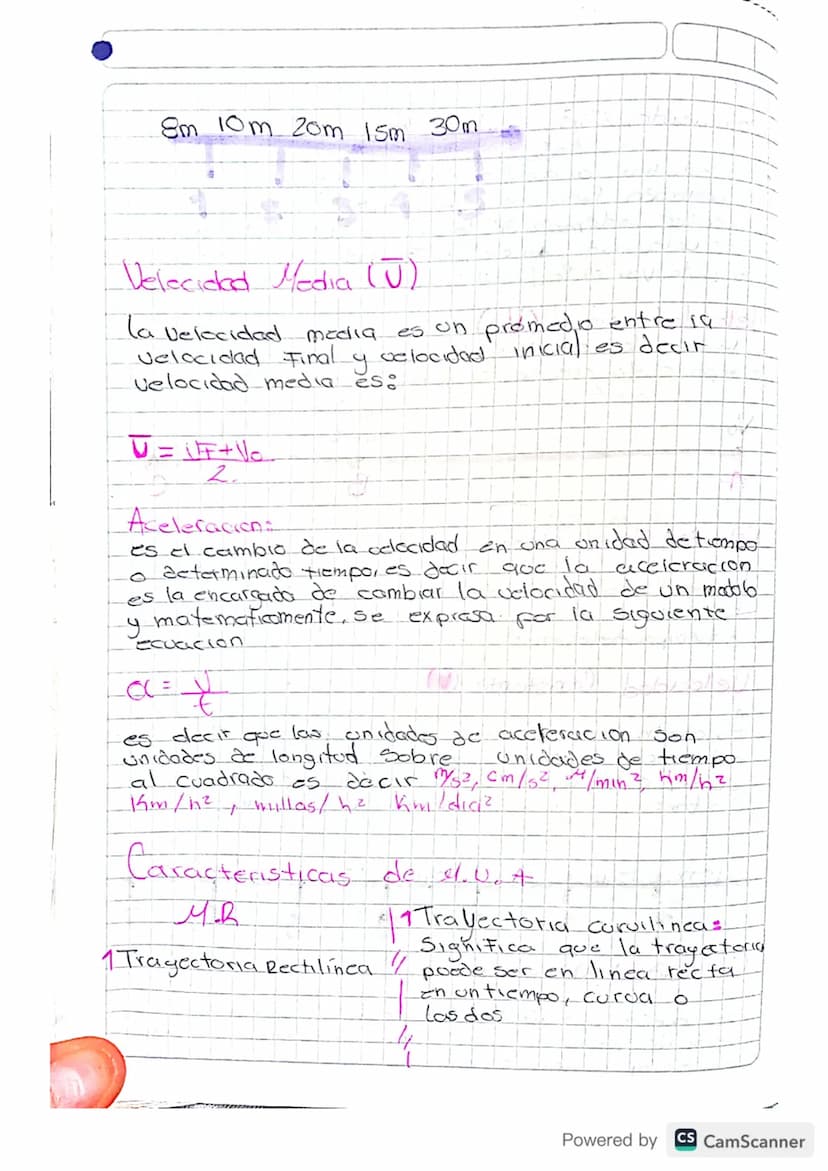 8m 10m 20m 15m 30m
1 2 3 4 5
Velocidad Media (Ū)
la velocidad media es un promedio entre la
velocidad Final y velocidad inicial es decir
velocidad media es:
Ū = VF+Vo
2.
Aceleracion:
es el cambio de la velocidad en una unidad de tiempo
o determinado tiempo, es decir que la aceleracion
es la encargada de cambiar la velocidad de un
y matematicamente, se expresa por la siguiente
ecuacion
a = V
t
es decir que las unidades de aceleracion son
unidades de longitud sobre unidades de tiempo
al cuadrado es decir m/s², cm/s², M/min², km/h²
Km/h², millas/h² Km/dia²
Caracteristicas de M.U.A
M.R
1 Trayectoria Rectilínea
1 Trayectoria curvilinea:
Significa que la trayectoria
puede ser en linea recta
en un tiempo, curva o
las dos
Powered by CS CamScanner